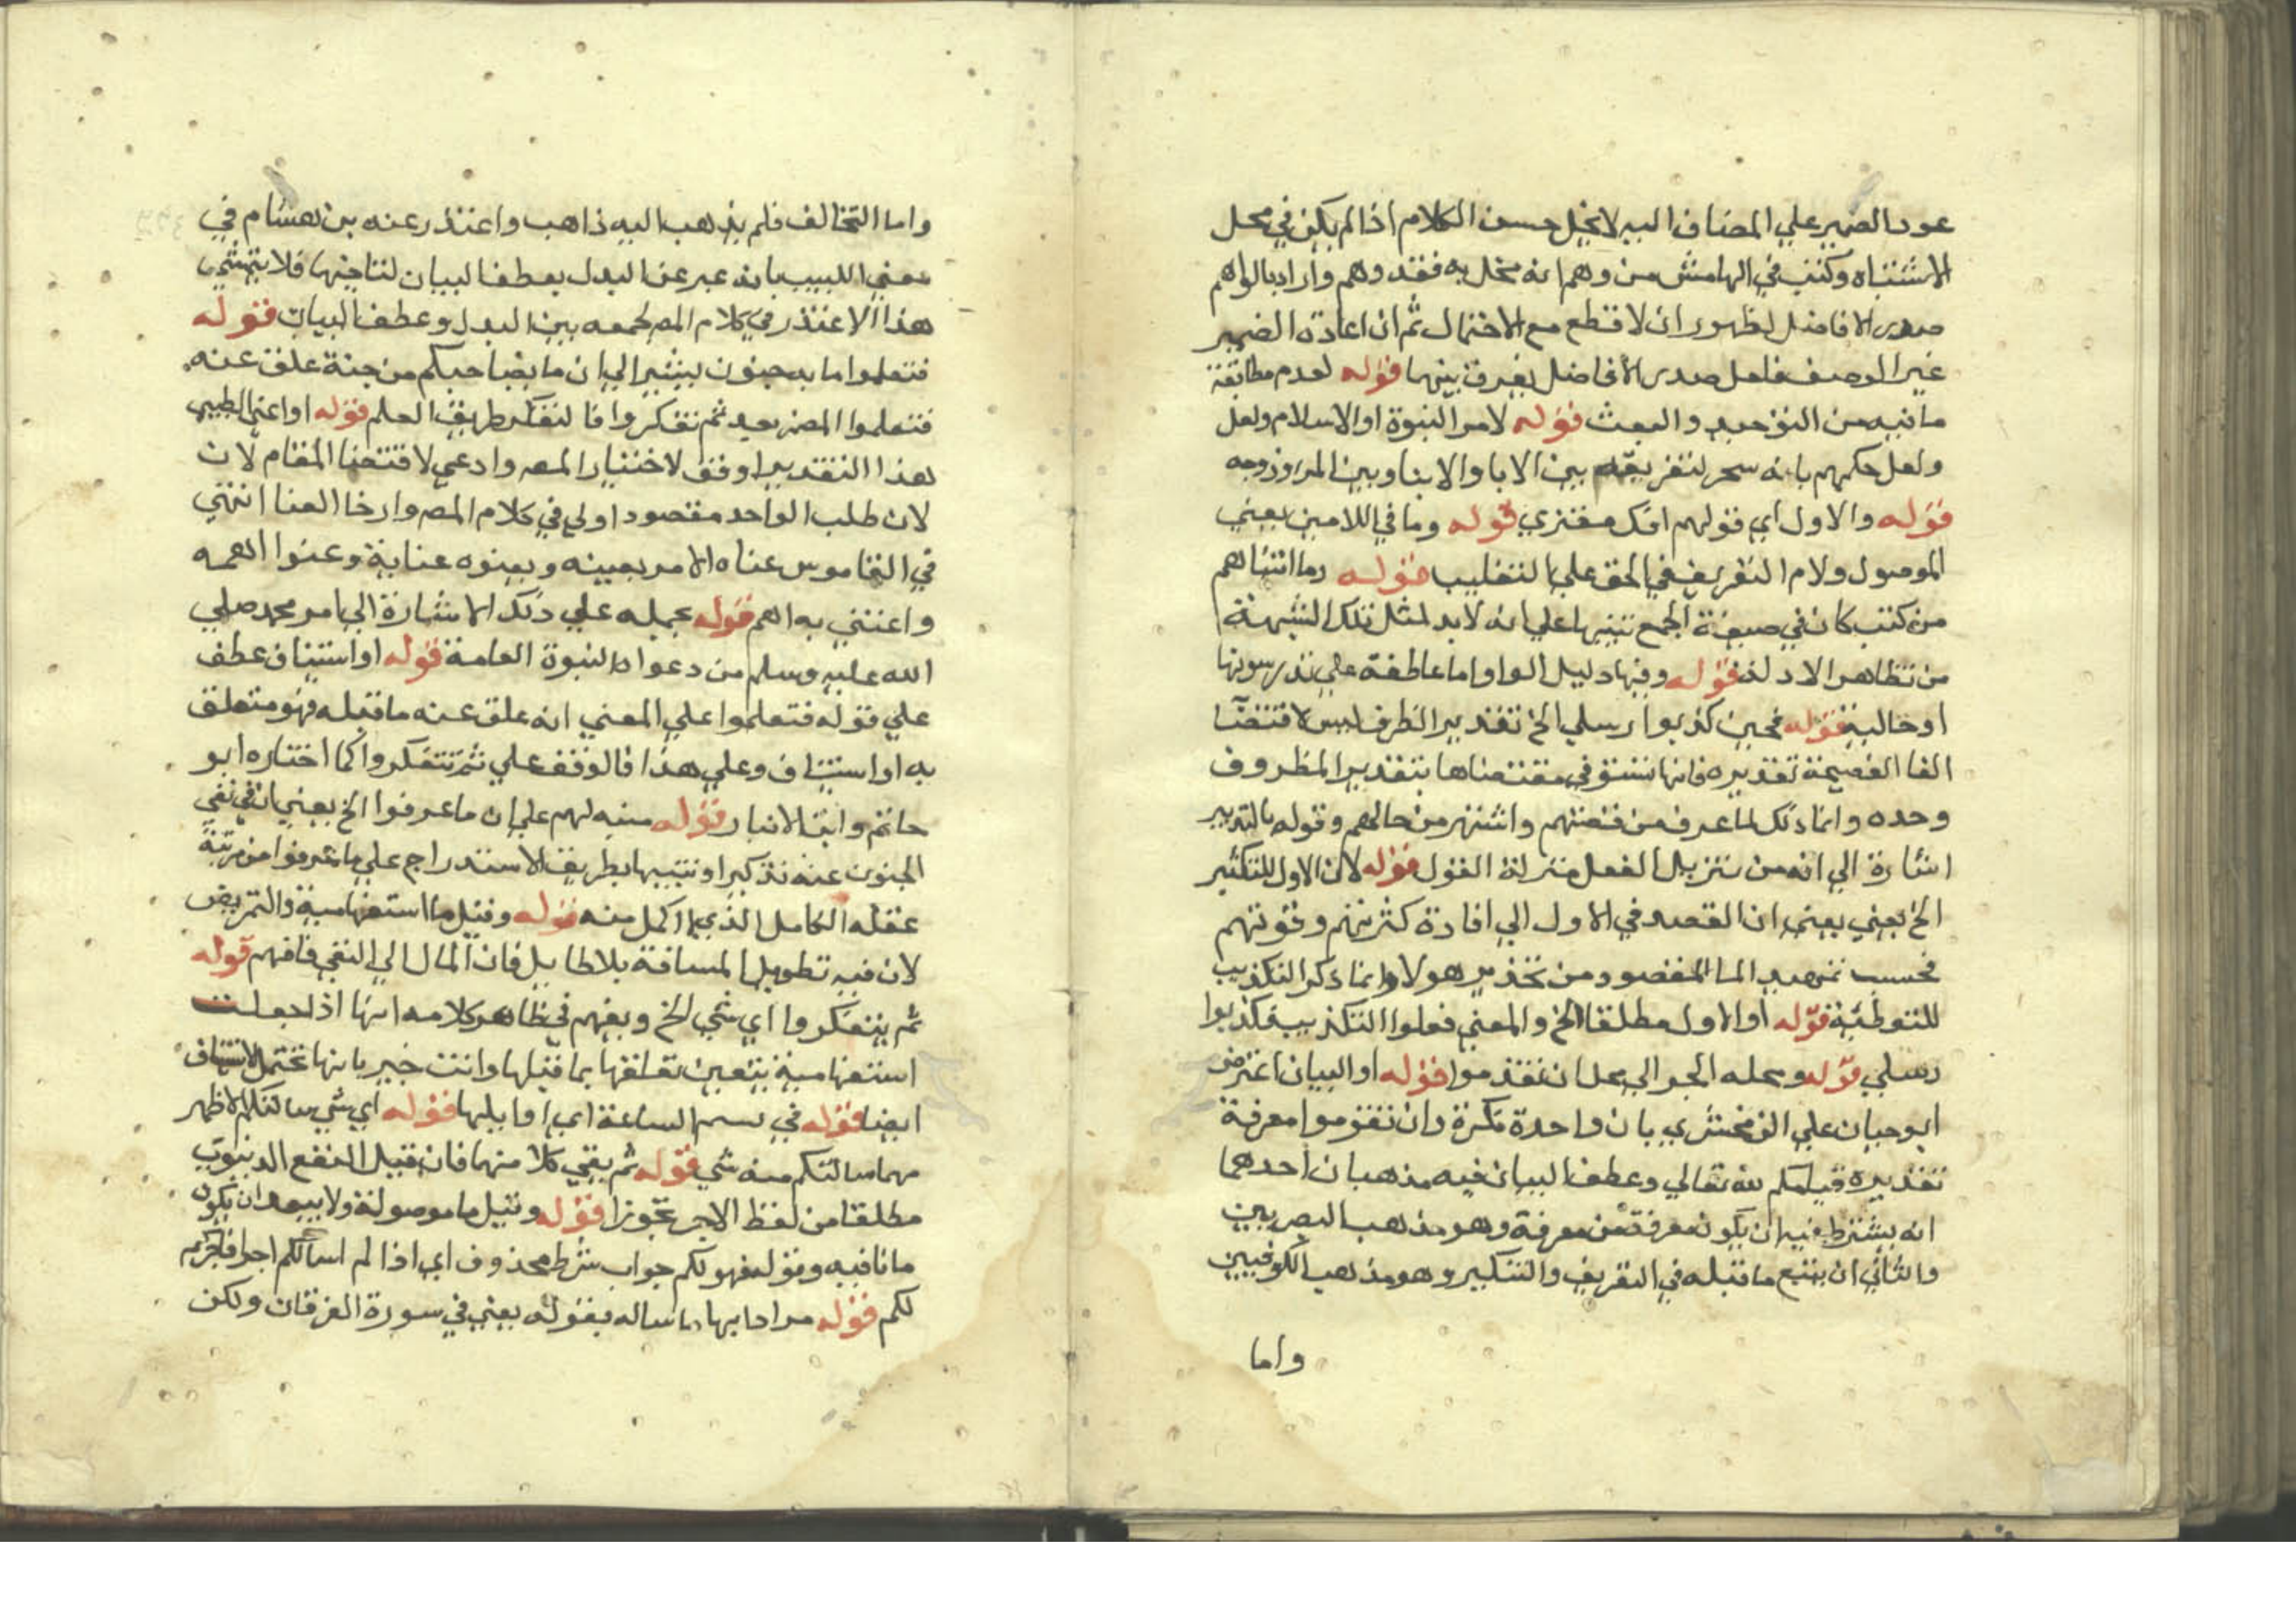 عود الضمير علي المضاف اليه لا يخل حسن الكلام اذا لم يكن في محل
الاشتباه وكتب في الهامش من وهم انه مخل به فقد وهم واراد بالواهم
صدر الافاضل لظهور ان لا قطع مع الاحتمال ثم ان اعادة الضمير
غير الوصف فلعل صدر الافاضل يفرق بينهما قوله لعدم مطابقة
ما فيه من التوحيد والبعث قوله لامر النبوة او الاسلام ولعل
ولعل حكمهم بانه سحر لتفريقه بين الابا والابنا وبين المر وزوجه
قوله والاول اي قولهم افك مفتري قوله وما في اللامين يعني
الموصول ولام التعريف في الحق علي التغليب قوله وما اتيناهم
من كتب كان في صيغة الجمع تنبيها علي انه لا بد لمثل تلك الشبهة
من تظاهر الادلة قوله وفيها دليل الواو اما عاطفة علي يدرسونها
او حالية قوله فحين كذبوا رسلي الخ تقدير الظرف ليس لاقتضا
الفا الفصيحة تقديره فانها تستوفي مقتضاها بتقدير المظروف
وحده وانما ذلك لما عرف من قصتهم واشتهر من حالهم وقوله بالتدبير
اشارة الي انه من تنزيل الفعل منزلة القول قوله لان الاول للتكثير
الخ يعني يعني ان القصد في الاول الي افادة كثرتهم وقوتهم
فحسب تمهيد الما المقصود من تحذير هولا وانما ذكر التكذيب
للتوطئية قوله او الاول مطلقا الخ والمعني فعلوا التكذيب فكذبوا
رسلي قوله ومحله الجر الي محل ان تقوموا قوله او البيان اعترض
ابو حيان علي الزمخشري بان واحدة نكرة وان تقوموا معرفة
تقديره قيامكم لله تعالي وعطف البيان فيه مذهبان احدهما
انه يشترط فيه ان يكون معرفة من معرفة وهو مذهب البصريين
والثاني ان يتبع ما قبله في التعريف والتنكير وهو مذهب الكوفيين
واما
واما التخالف فلم يذهب اليه ذاهب واعتذر عنه بن هشام في
مغني اللبيب بانه عبر عن البدل بعطف البيان لتاخيهما فلا يتمشي
هذا الاعتذر في كلام المص لجمعه بين البدل وعطف البيان قوله
فتعلموا ما به جنون يشير الي ان ما بصاحبكم من جنة علق عنه
فتعلموا المضمر بعيد ثم تتفكروا فا لتفكر طريق العلم قوله او اعني الطيبي
هذا التقدير اوفق لاختيار المص وادعي لاقتضا المقام لان
لان طلب الواحد مقصود اولي في كلام المص وارخا العنا انتهي
في القاموس عناه الامر يعينه ويعنوه عناية وعنوا اهمه
واعتني به اهم قوله يحمله علي ذلك الاشارة الي امر محمد صلي
الله عليه وسلم من دعواه النبوة العامة قوله او استيناف عطف
علي قوله فتعلموا علي المعني انه علق عنه ما قبله فهو متعلق
به او استيناف وعلي هذا فالوقف علي ثم تتفكروا كما اختاره ابو
حاتم وابن الانبار قوله منبه لهم علي ان ما عرفوا الخ يعني ان في نفي
الجنون عنه تذكيرا وتنبيها بطريق الاستدراج علي ما عرفوا من مرتبة
عقله الكامل الذي لا اكمل منه قوله وقيل ما استفهامية والتمريض
لان فيه تطويل المسافة بلا طايل فان المال الي النفي فافهم قوله
ثم يتفكروا اي شي الخ ويفهم في ظاهر كلامه انها اذ لجعلت
استفهامية يتعين تعلقها بما قبلها وانت خبير بانها تحتمل الاستيناف
ايضا قوله في نسم الساعة اي اوايلها قوله اي شي سالتكم الاظهر
مهما سالتكم منه شي قوله ثم بقي كلا منهما فان قيل النفع الدنيوي
مطلقا من لفظ الاجر تجوزا قوله وقيل ما موصولة ولا يبعد ان يكون
ما نافية وقوله فهو لكم جواب شرط محذوف اي اذا لم اسالكم اجرا فاجركم
لكم قوله مرادا بها ما ساله بقوله يعني في سورة الفرقان ولكن